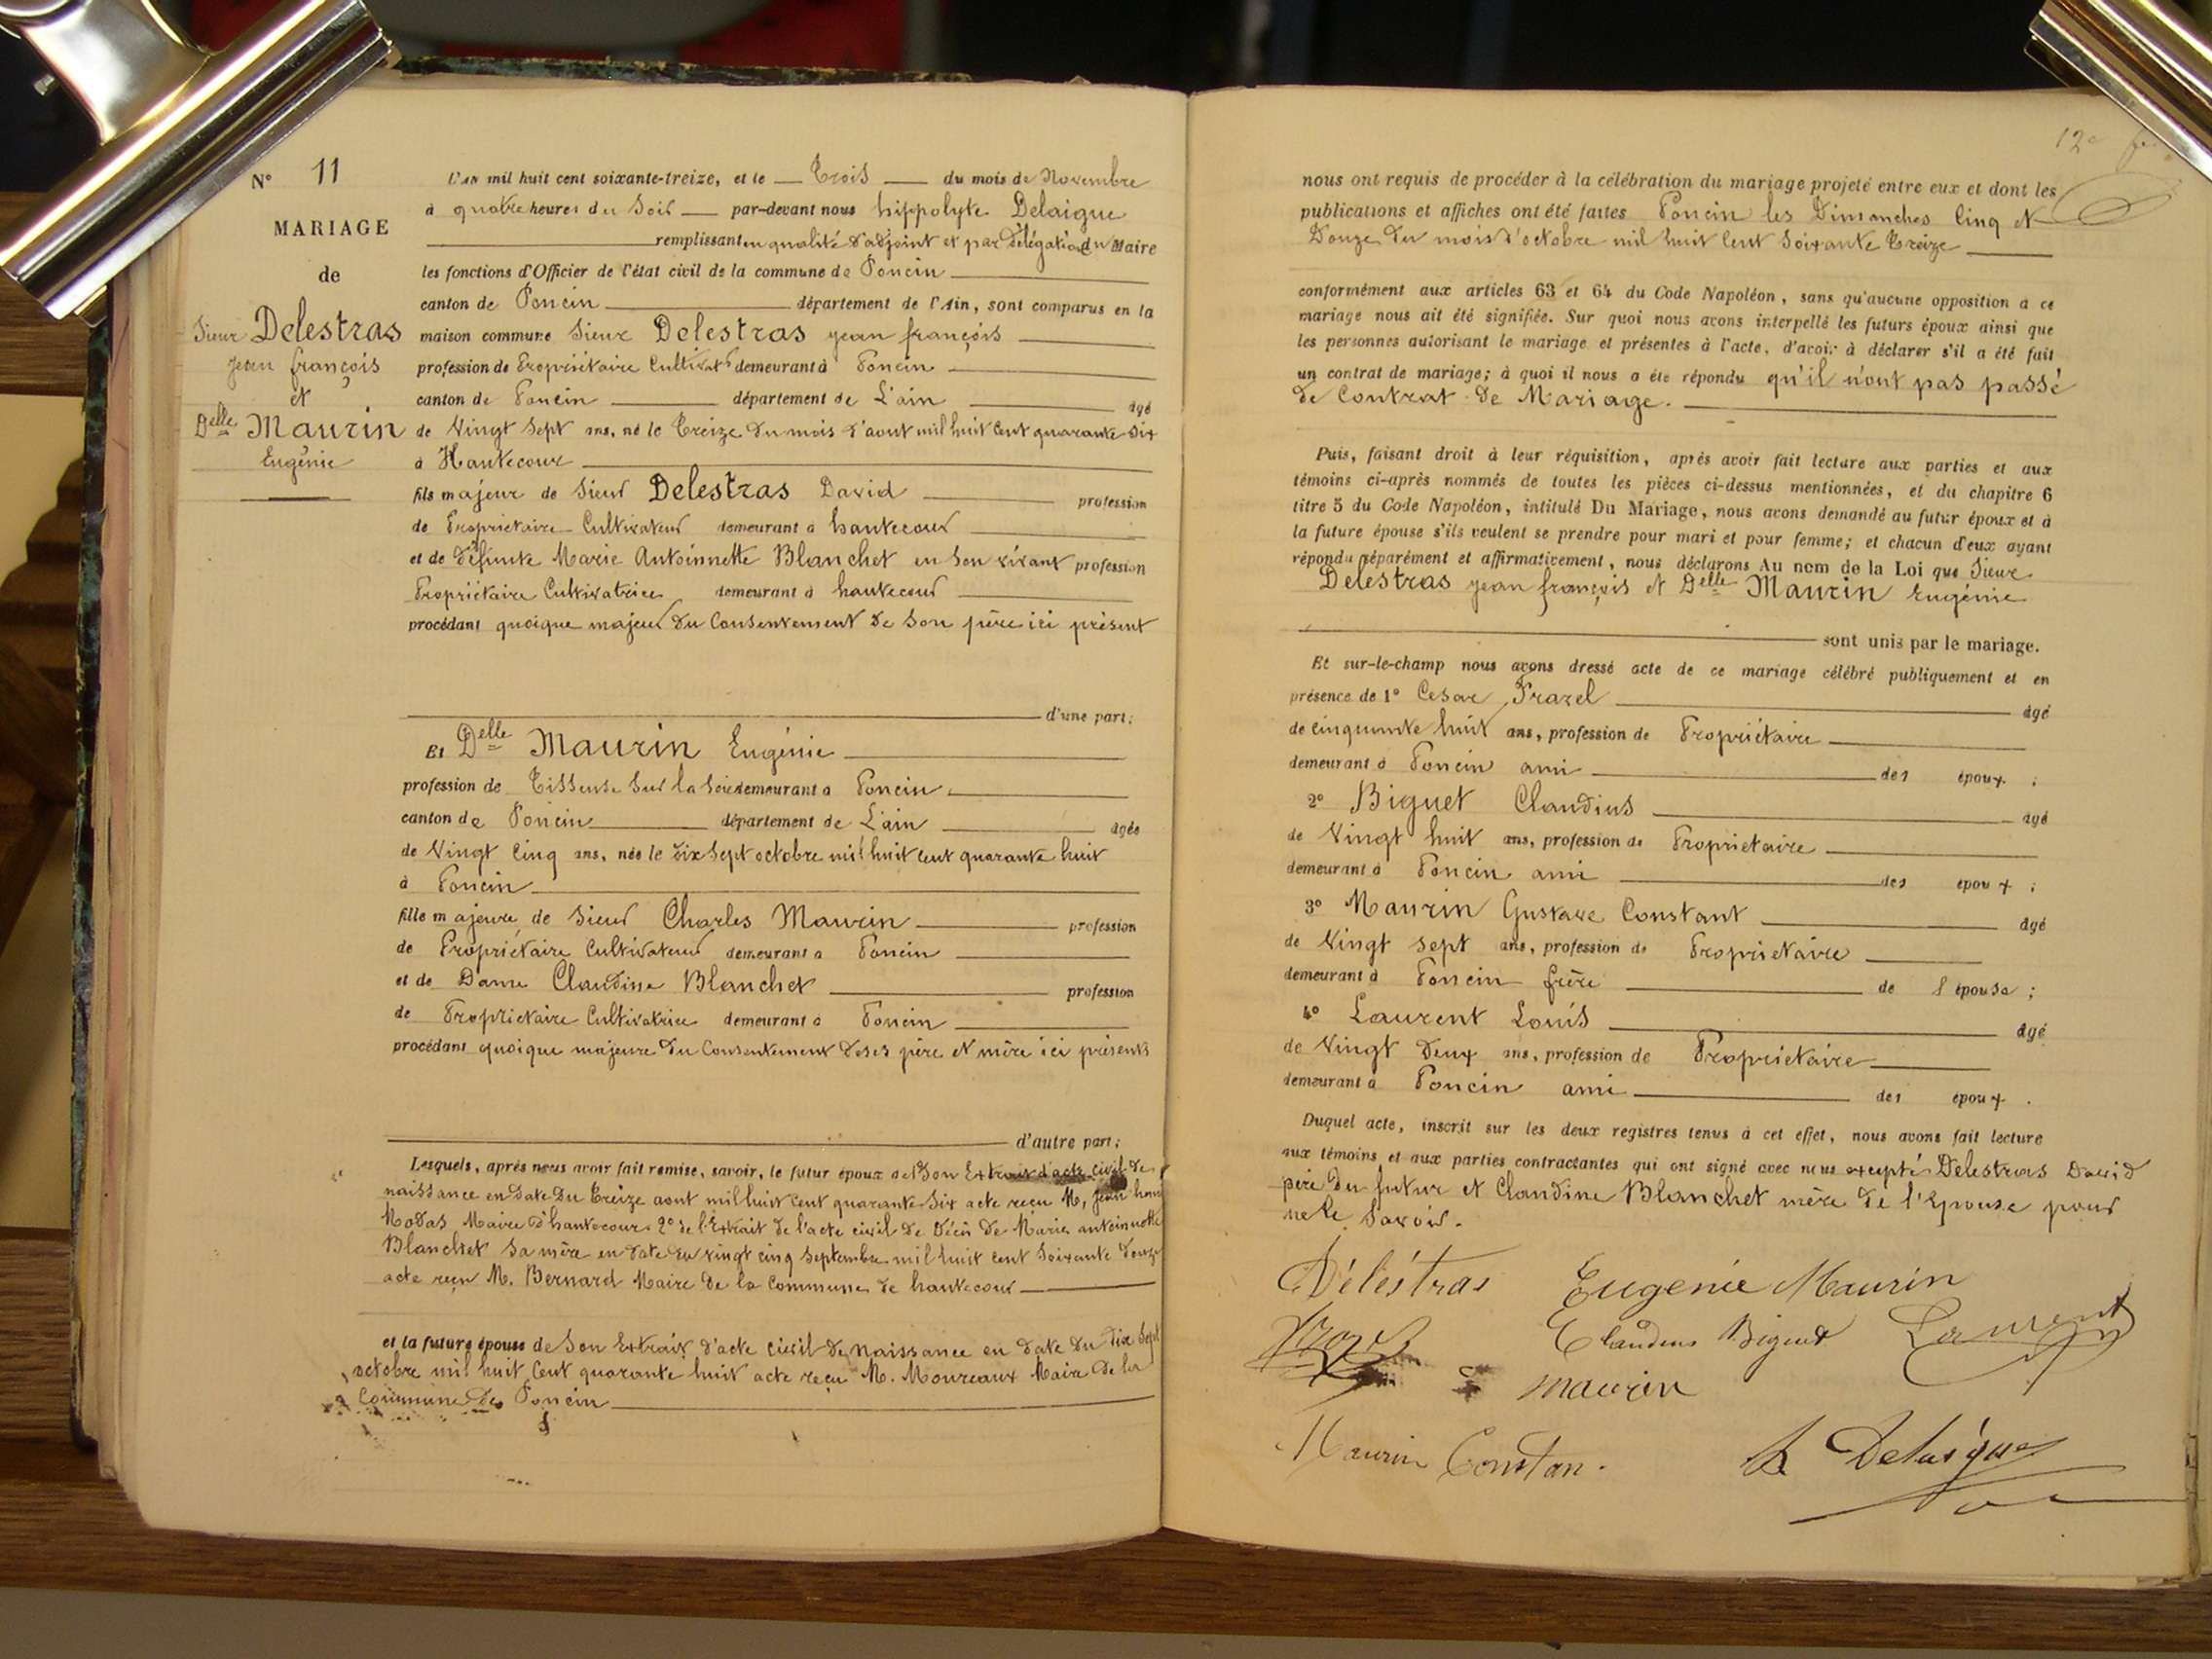 N° 11
MARIAGE
de
Sieur Delestras
jean françois
et
Delle Maurin
Eugénie
L'AN mil huit cent soixante-treize, et le Trois du mois de Novembre
à quatre heures du Soir par-devant nous hippolyte Delaigue
remplissant en qualité d'adjoint et par délégation du Maire
les fonctions d'Officier de l'état civil de la commune de Poncin
canton de Poncin département de l'Ain, sont comparus en la
maison commune Sieur Delestras jean françois
profession de Propriétaire Cultivatr demeurant à Poncin
canton de Poncin département de L'ain âgé
de Vingt Sept ans, né le Treize du mois d'aout mil huit Cent quarante Six
à Hautecour
fils majeur de Sieur Delestras David profession
de Propriétaire Cultivateur demeurant à hautecour
et de défunte Marie Antoinnette Blanchet en Son vivant profession
Propriétaire Cultivatrice demeurant à hautecour
procédant quoique majeur du Consentement de Son père ici présent
d'une part;
Et Delle Maurin Eugénie
profession de Tisseuse Sur la Soie demeurant à Poncin
canton de Poncin département de L'ain âgée
de Vingt Cinq ans, née le dix Sept octobre mil huit Cent quarante huit
à Poncin
fille majeure de Sieur Charles Maurin profession
de Propriétaire Cultivateur demeurant à Poncin
et de Dame Claudine Blanchet profession
de Propriétaire Cultivatrice demeurant à Poncin
procédant quoique majeure du Consentement de ses père et mère ici présents
d'autre part;
Lesquels, après nous avoir fait remise, savoir, le futur époux de 1° Son Extrait d'acte civil de
naissance en date du Treize aout mil huit Cent quarante Six acte reçu M, jean
Maire d'hautecour 2° de l'Extrait de l'acte civil de décès de Marie antoinnette
Blanchet Sa mère en date du vingt cinq Septembre mil huit Cent Soixante douze
acte reçu M. Bernard Maire de la Commune de hautecour
et la future épouse de Son Extrait d'acte civil de Naissance en date du dix Sept
octobre mil huit Cent quarante huit acte reçu M. Moureaux Maire de la
Commune de Poncin
12e
nous ont requis de procéder à la célébration du mariage projeté entre eux et dont les
publications et affiches ont été faites Poncin les Dimanches Cinq et
Douze du mois d'octobre mil huit Cent Soixante Treize
conformément aux articles 63 et 64 du Code Napoléon, sans qu'aucune opposition à ce
mariage nous ait été signifiée. Sur quoi nous avons interpellé les futurs époux ainsi que
les personnes autorisant le mariage et présentes à l'acte, d'avoir à déclarer s'il a été fait
un contrat de mariage; à quoi il nous a été répondu qu'il n'ont pas passé
de Contrat de Mariage.
Puis, faisant droit à leur réquisition, après avoir fait lecture aux parties et aux
témoins ci-après nommés de toutes les pièces ci-dessus mentionnées, et du chapitre 6
titre 5 du Code Napoléon, intitulé Du Mariage, nous avons demandé au futur époux et à
la future épouse s'ils veulent se prendre pour mari et pour femme; et chacun d'eux ayant
répondu séparément et affirmativement, nous déclarons Au nom de la Loi que Sieur
Delestras jean françois et Delle Maurin Eugénie
sont unis par le mariage.
Et sur-le-champ nous avons dressé acte de ce mariage célébré publiquement et en
présence de 1° Cesar
âgé
de cinquante huit ans, profession de Propriétaire
demeurant à Poncin ami des époux ;
2° Biguet Claudius âgé
de Vingt huit ans, profession de Propriétaire
demeurant à Poncin ami des époux ;
3° Maurin Gustave Constant âgé
de Vingt Sept ans, profession de Propriétaire
demeurant à Poncin frère de l'épouse ;
4° Laurent Louis âgé
de Vingt Deux ans, profession de Propriétaire
demeurant à Poncin ami des époux .
Duquel acte, inscrit sur les deux registres tenus à cet effet, nous avons fait lecture
aux témoins et aux parties contractantes qui ont signé avec nous excepté Delestras David
père du futur et Claudine Blanchet mère de l'Epouse pour
ne le Savoir.
Délestras Eugenie Maurin
Claudius Biguet Laurent
maurin
Maurin Constan.
h Delaigue